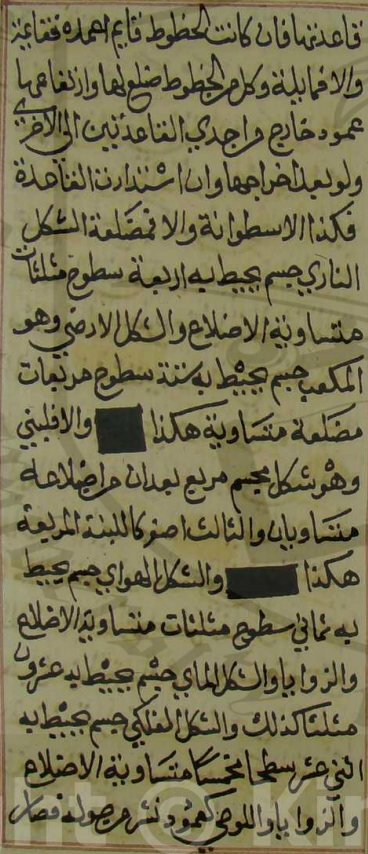 قاعدتها فان كانت الخطوط قايم اعمده فقايمة
والا فمايلة وكل من الخطوط ضلع لها وارتفاعها
عمود خارج من احدي القاعدتين الي الاخري
ولو بعد اخراجها وان استدارت القاعدة
فكذا الاسطوانة والا فمضلعة الشكل
الناري جسم يحيط به اربعة سطوح مثلثات
متساوية الاضلاع والشكل الارضي وهو
المكعب جسم يحيط به ستة سطوح مربعات
مضلعة متساوية هكذا والا فلبني
وهو شكل مجسم مربع بعدان من اضلاعه
متساويان والثالث اصغر كاللبنة المربعة
هكذا والشكل الهواي جسم يحيط
به ثماني سطوح مثلثات متساوية الاضلاع
والزوايا والشكل الماي جسم يحيط به عشرون
مثلثا كذلك والشكل الفلكي جسم يحيط به
اثني عشر سطحا مخمسا متساوية الاضلاع
والزوايا واللوحي كعمود نشر من طوله فصار